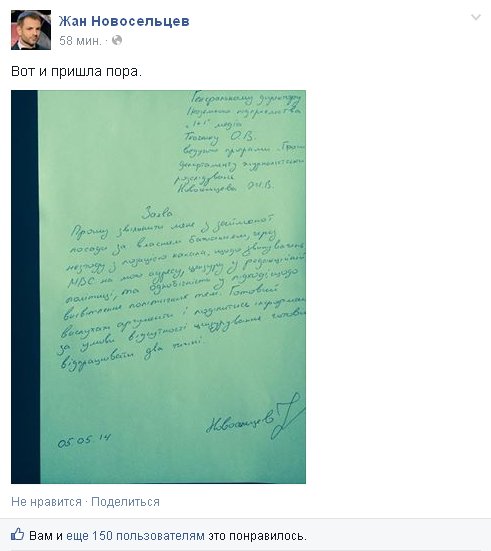 Жан Новосельцев
58 мин. ·
Вот и пришла пора.
Генеральному директору
Іноземного підприємства
"1+1" медіа
Ткаченку О.В.
ведучого програми "Гроші"
департаменту журналістських
розслідувань
Новосельцева О.В.
Заява
Прошу звільнити мене з займаної
посади за власним бажанням, через
незгоду з позицією канала, щодо звинувачень
МВС на мою адресу, цензуру у редакційній
політиці, та однобокість у підході щодо
висвітлення політичних тем. Готовий
вислухати аргументи і поділитись інформацією
за умови відсутності цензурування готовий
відпрацювати два тижні.
05.05.14
Новосельцев
Не нравится · Поделиться
Вам и еще 150 пользователям это понравилось.